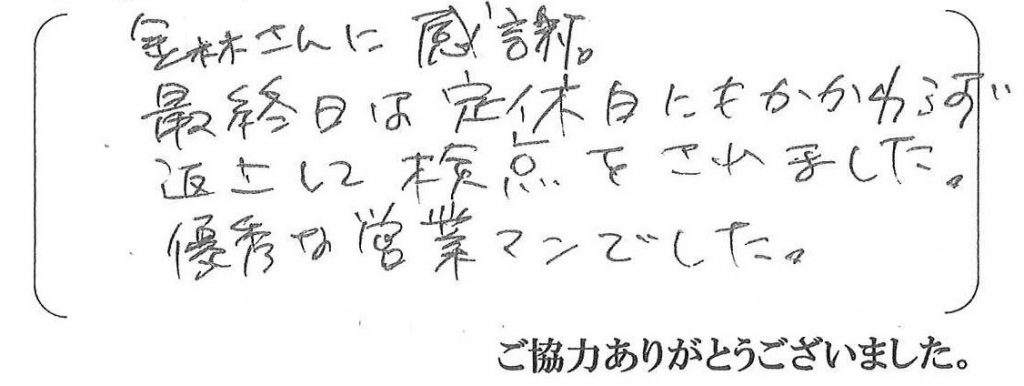 金林さんに感謝。
最終日は定休日にもかかわらず
返上して検点をされました。
優秀な営業マンでした。
ご協力ありがとうございました。